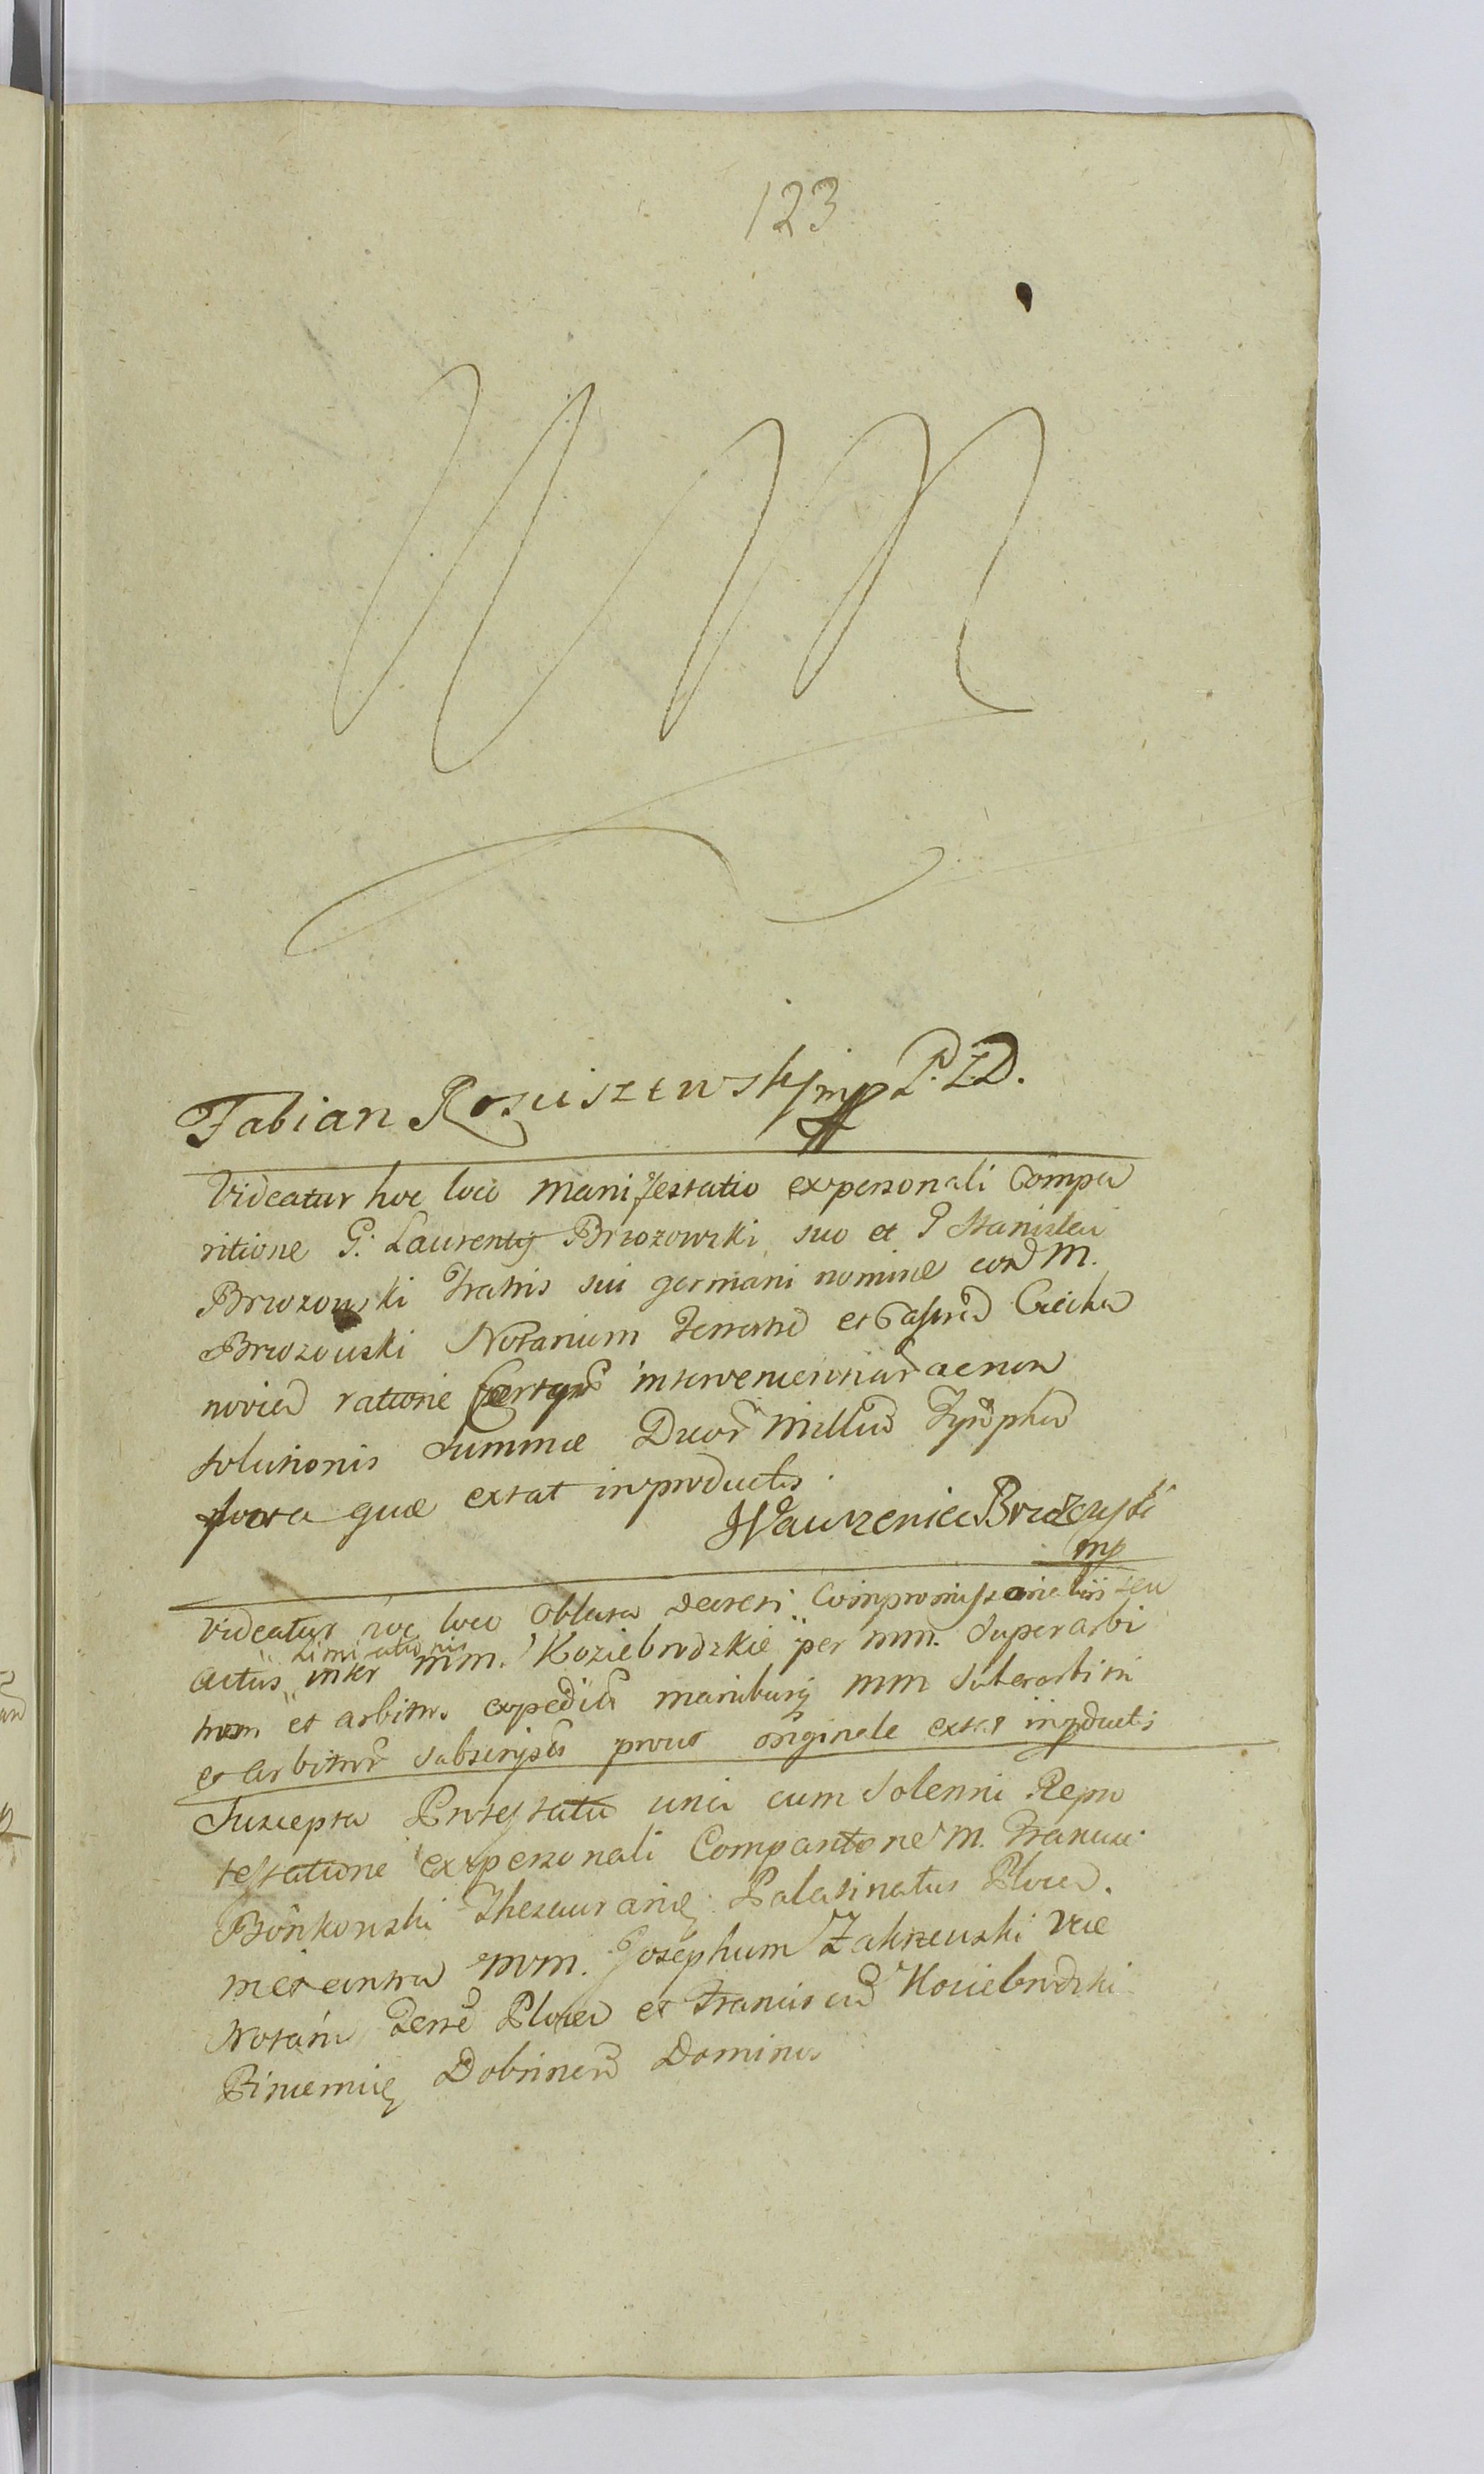 123
Fabian Rosciszewski mp P.Z.D.
Videatur hoc loco Manifestatio ex personali Compa
ritione G. Laurentij Brzozowski suo et G Stanislai
Brzozowski Fratris sui germani nomine cor M.
Brzozowski Notarium Terrestr et Castren Ciecha
novien ratione interveniendar ac non
solutionis Summæ Duor Milliu Tynpho
quæ extat in productis.
Wawrzeniec Brzozowski
mp
Videatur hoc loco Oblata decreti Compromissorialis seu
Limitationis
actus inter MM. Koziebrodzkie per MM. Superarbi
trum et arbitros expediti manibusq MM Superarbitri
et arbitror subscripti prout originale extat in productis
Suscepta Protestatio una cum Solenni Repro
testatione ex personali Comparitione M. Francisci
Bonkowski Thesaurarij Palatinatus Plocen.
MM. Josephum Zakrzewski Vice
Notariu Terre Plocen et Franciscu Koziebrodzki
Pincernię Dobrinen Dominos